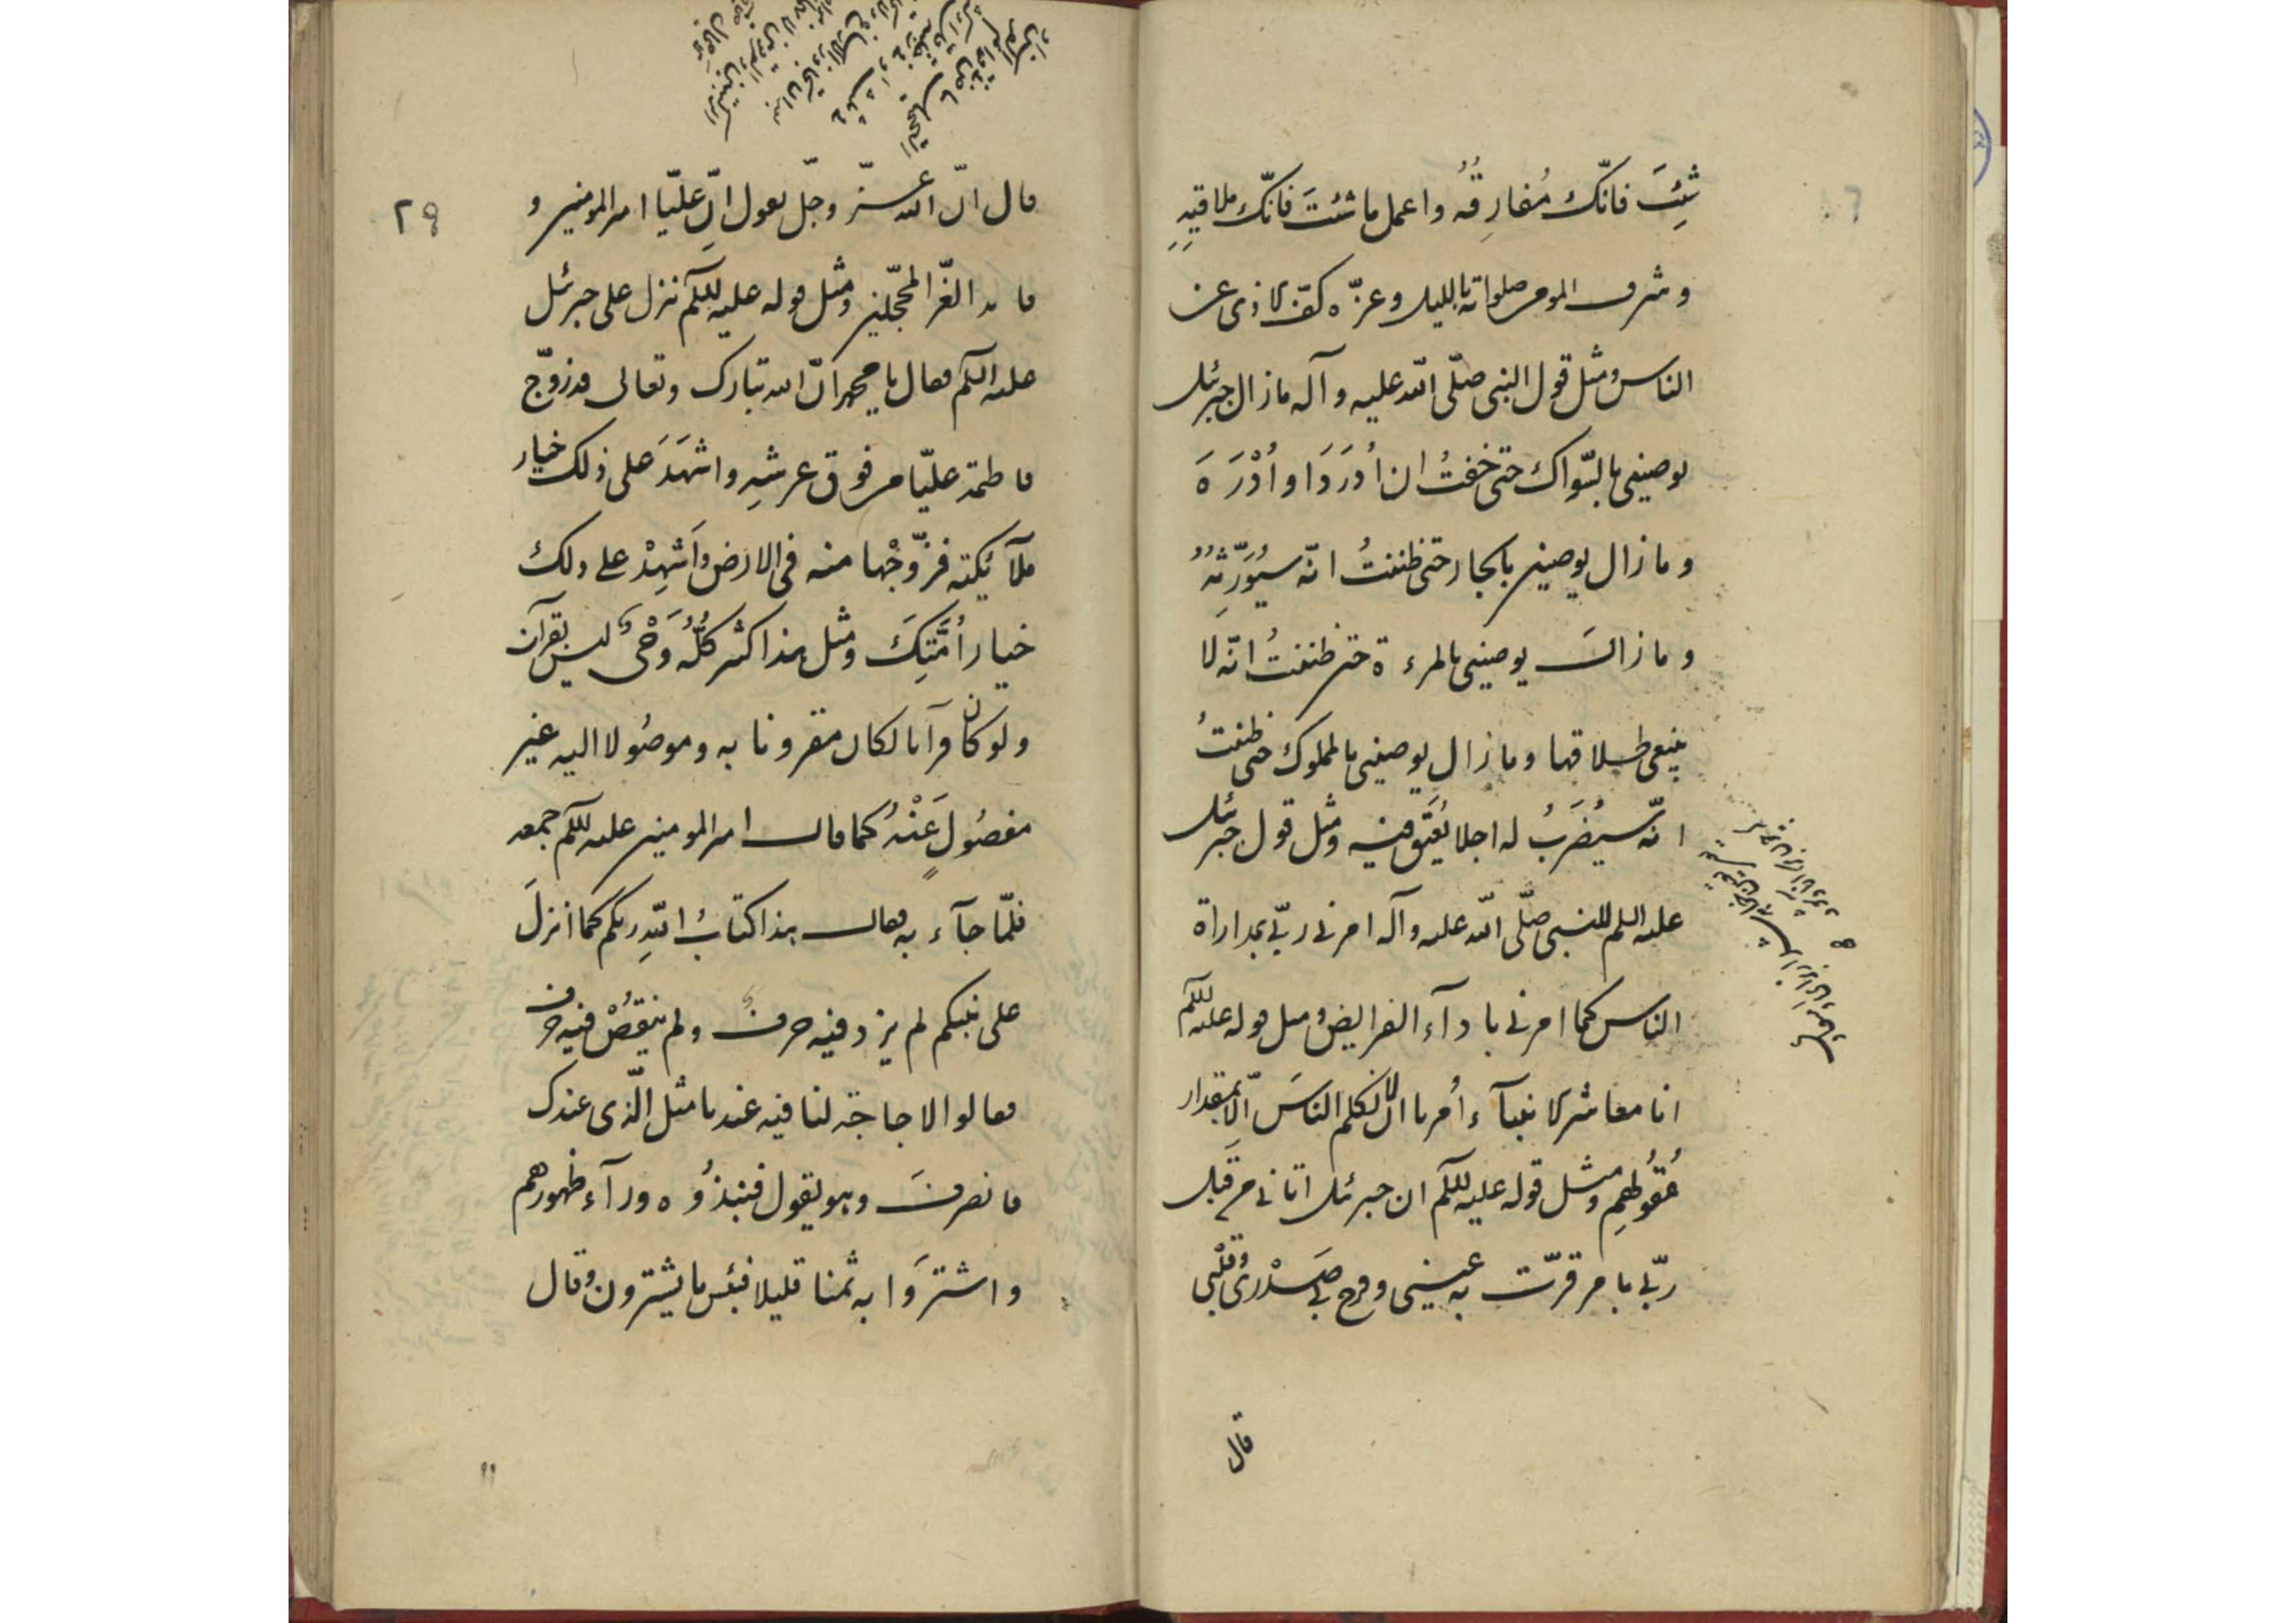 شِئتَ فانّك مُفارِقُه واعمل ما شئتَ فانّك ملاقيهِ
وشرف المومن صلواته بالليل وعزّه كفّ الاذى عن
الناس ومثل قول النبى صلّى الله عليه وآله ما زال جبرئيل
يوصينى بالسّواك حتى خفتُ ان اُدرَدَ او اُدْرَدَه
وما زال يوصينى بالجار حتى ظننتُ انّه سيُوَرِّثُهُ
وما زال يوصينى بالمرءة حتى ظننتُ انّه لا
ينبغى طلاقها وما زال يوصينى بالمملوك حتى ظننتُ
انّه سيُضرَبُ له اجلا يُعتَق فيه ومثل قول جبرئيل
عليه السلم للنبى صلّى الله عليه وآله امرنى ربّى بمداراة
الناس كما امرنى باداء الفرايض ومثل قوله عليه السلم
انا معاشر الانبيآء اُمرنا ان لا نكلم الناسَ الّا بمقدار
عُقُولهِم ومثل قوله عليه السلم ان جبرئيل اتانى من قبل
ربّى بامر قرّت به عينى وفرح به صَدْرى وقلبى
قال
٢٩
قال انّ الله عزّ وجلّ يقول انّ عليّا امير المومنين و
قائد الغرّ المحجّلين ومثل قوله عليه السلم نزل على جبرئيل
عليه السلم فقال يا محمد انّ الله تبارك وتعالى قد زوّج
فاطمة عليّا من فوق عرشهِ واشهَدَ على ذلك خيار
ملآئكته فزوّجْها منه فى الارض واَشهِدْ على ذلك
خيار اُمَّتِكَ ومثل هذا كثير كُلُّهُ وَحْىٌ ليس بقرآن
ولو كان قرآنا لكان مقرونا به وموصُولا اليه غير
مفصُولٍ عَنْهُ كما قال امير المومنين عليه السلم جمعه
فلمّا جآء به فقال هذا كتابُ اللهِ ربكم كما انزلَ
على نبيكم لم يزد فيه حرفٌ ولم ينقُصْ فيه حرف
فقالوا لا حاجة لنا فيه عندنا مثل الّذى عندك
فانصرفَ وهو يقول فنبذُوه ورآء ظهورهم
واشتَرَوا به ثمنا قليلا فبئس ما يشترون وقال